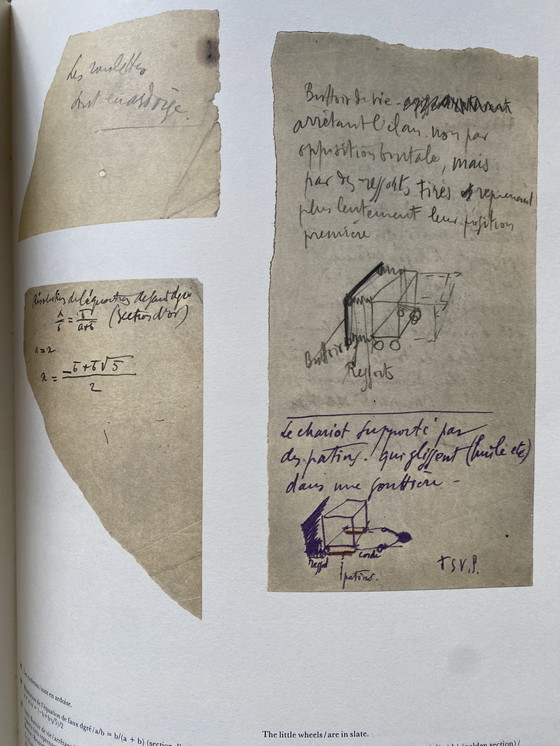 Les roulettes
sont en ardoise.
Résolution de l'équation de faux dgré
a/b = b/(a+b) (section d'or)
a = x
x = (−b + b√5)/2
Buttoir de vie -
arrêtant l'élan non par
opposition brutale, mais
par des ressorts tirés reprenant
plus lentement leur position
première
Buttoir
Ressorts
Le chariot supporté par
des patins. qui glissent (huile etc)
dans une gouttière -
ressort
corde
patins.
T S V. P.
sont en ardoise.
de l'équation de faux dgré/a/b = b/(a + b) (section
The little wheels/are in slate.
(golden section)/